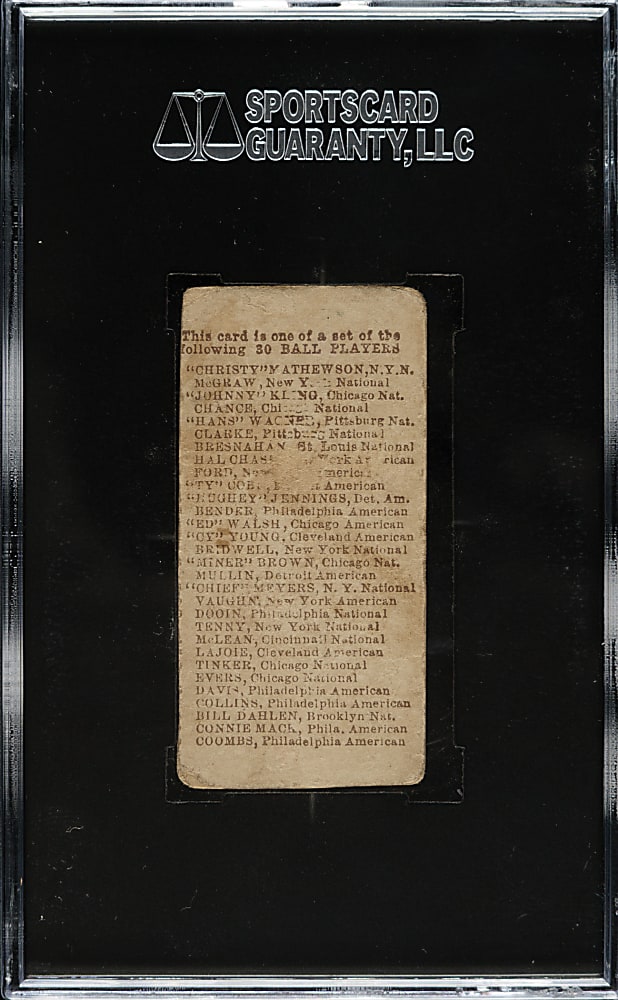 SPORTSCARD
GUARANTY, LLC
This card is one of a set of the
following 30 BALL PLAYERS
"CHRISTY" MATHEWSON, N.Y.N.
McGRAW, New National
"JOHNNY" KLING, Chicago Nat.
CHANCE, National
"HANS" WAGNER, Pittsburg Nat.
CLARKE, Pittsburg National
BRESNAHAN St. Louis National
HAL CHASE
FORD,
"TY" COBB, American
"HUGHEY" JENNINGS, Det. Am.
BENDER, Philadelphia American
"ED" WALSH, Chicago American
"CY" YOUNG, Cleveland American
BRIDWELL, New York National
"MINER" BROWN, Chicago Nat.
MULLIN, Detroit American
"CHIEF" MEYERS, N. Y. National
VAUGHN, New York American
DOOIN, Philadelphia National
TENNY, New York National
McLEAN, Cincinnati National
LAJOIE, Cleveland American
TINKER, Chicago National
EVERS, Chicago National
DAVIS, Philadelphia American
COLLINS, Philadelphia American
BILL DAHLEN, Brooklyn Nat.
CONNIE MACK, Phila. American
COOMBS, Philadelphia American